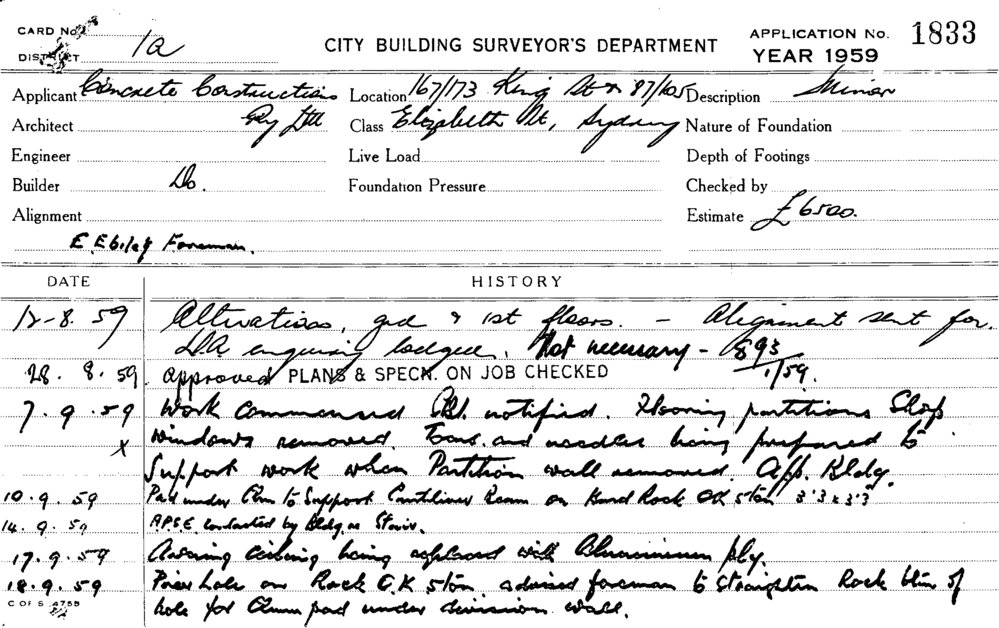 CARD No.
DISTRICT 1a
CITY BUILDING SURVEYOR'S DEPARTMENT
APPLICATION No. 1833
YEAR 1959
Applicant Concrete Constructions
Location 167/173 King St & 87/105
Description Minor
Architect Pty Ltd
Class Elizabeth St, Sydney
Nature of Foundation
Engineer
Live Load
Depth of Footings
Builder Do.
Foundation Pressure
Checked by
Alignment
Estimate £6500.
E. Foreman.
DATE HISTORY
12-8.59 Alterations, grd & 1st floors. - Alignment sent for.
D.A enquiry lodged. Not necessary - 893/1/59.
28.8.59 approved PLANS & SPECN. ON JOB CHECKED
7.9.59 Work commenced notified. Flooring partitions Shop
x windows removed. and needles being prepared to
Support work when Partition wall removed. App. Bldg.
10.9.59 Pad under Clm to Support Cantiliver Beam on Hard Rock OK 5 ton 3'3 x 3'3
14.9.59 contacted by Bldg. re Stairs.
17.9.59 Awning ceiling being replaced with Aluminium ply.
18.9.59 Pier hole on Rock O.K 5 ton. advised foreman to straighten Rock btm of
C OF S 4755 hole for Clmn pad under division wall.